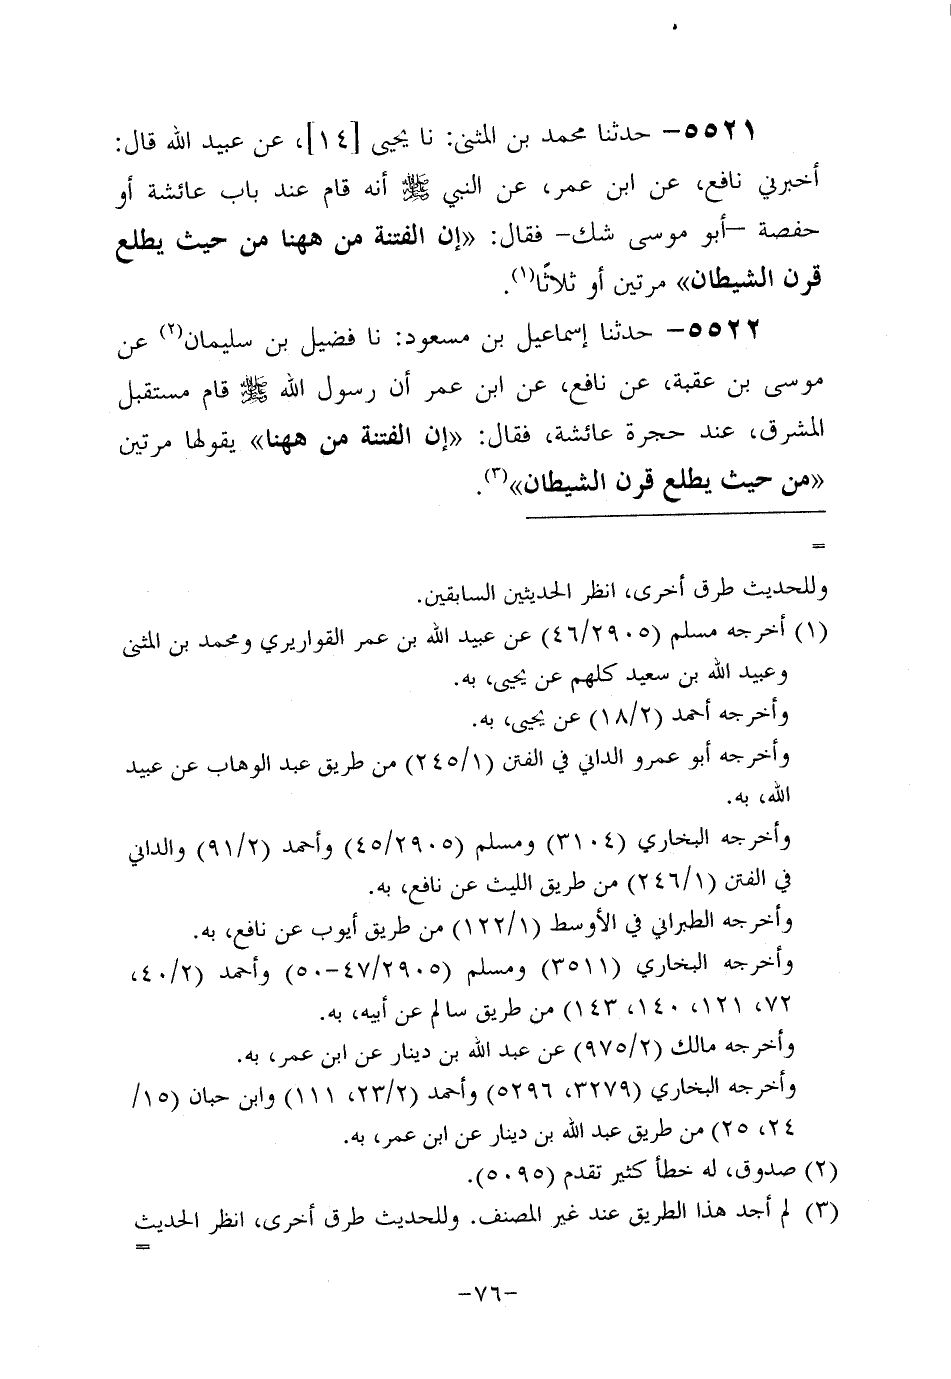 ٥٥٢١- حدثنا محمد بن المثنى: نا يحيى [١٤]، عن عبيد الله قال:
أخبرني نافع، عن ابن عمر، عن النبي ﷺ أنه قام عند باب عائشة أو
حفصة -أبو موسى شك- فقال: «إن الفتنة من ههنا من حيث يطلع
قرن الشيطان» مرتين أو ثلاثًا(١).
٥٥٢٢- حدثنا إسماعيل بن مسعود: نا فضيل بن سليمان(٢) عن
موسى بن عقبة، عن نافع، عن ابن عمر أن رسول الله ﷺ قام مستقبل
المشرق، عند حجرة عائشة، فقال: «إن الفتنة من ههنا» يقولها مرتين
«من حيث يطلع قرن الشيطان»(٣).
=
وللحديث طرق أخرى، انظر الحديثين السابقين.
(١) أخرجه مسلم (٤٦/٢٩٠٥) عن عبيد الله بن عمر القواريري ومحمد بن المثنى
وعبيد الله بن سعيد كلهم عن يحيى، به.
وأخرجه أحمد (١٨/٢) عن يحيى، به.
وأخرجه أبو عمرو الداني في الفتن (٢٤٥/١) من طريق عبد الوهاب عن عبيد
الله، به.
وأخرجه البخاري (٣١٠٤) ومسلم (٤٥/٢٩٠٥) وأحمد (٩١/٢) والداني
في الفتن (٢٤٦/١) من طريق الليث عن نافع، به.
وأخرجه الطبراني في الأوسط (١٢٢/١) من طريق أيوب عن نافع، به.
وأخرجه البخاري (٣٥١١) ومسلم (٤٧/٢٩٠٥-٥٠) وأحمد (٤٠/٢،
٧٢، ١٢١، ١٤٠، ١٤٣) من طريق سالم عن أبيه، به.
وأخرجه مالك (٩٧٥/٢) عن عبد الله بن دينار عن ابن عمر، به.
وأخرجه البخاري (٣٢٧٩، ٥٢٩٦) وأحمد (٢٣/٢، ١١١) وابن حبان (١٥/
٢٤، ٢٥) من طريق عبد الله بن دينار عن ابن عمر، به.
(٢) صدوق، له خطأ كثير تقدم (٥٠٩٥).
(٣) لم أجد هذا الطريق عند غير المصنف. وللحديث طرق أخرى، انظر الحديث
=
-٧٦-